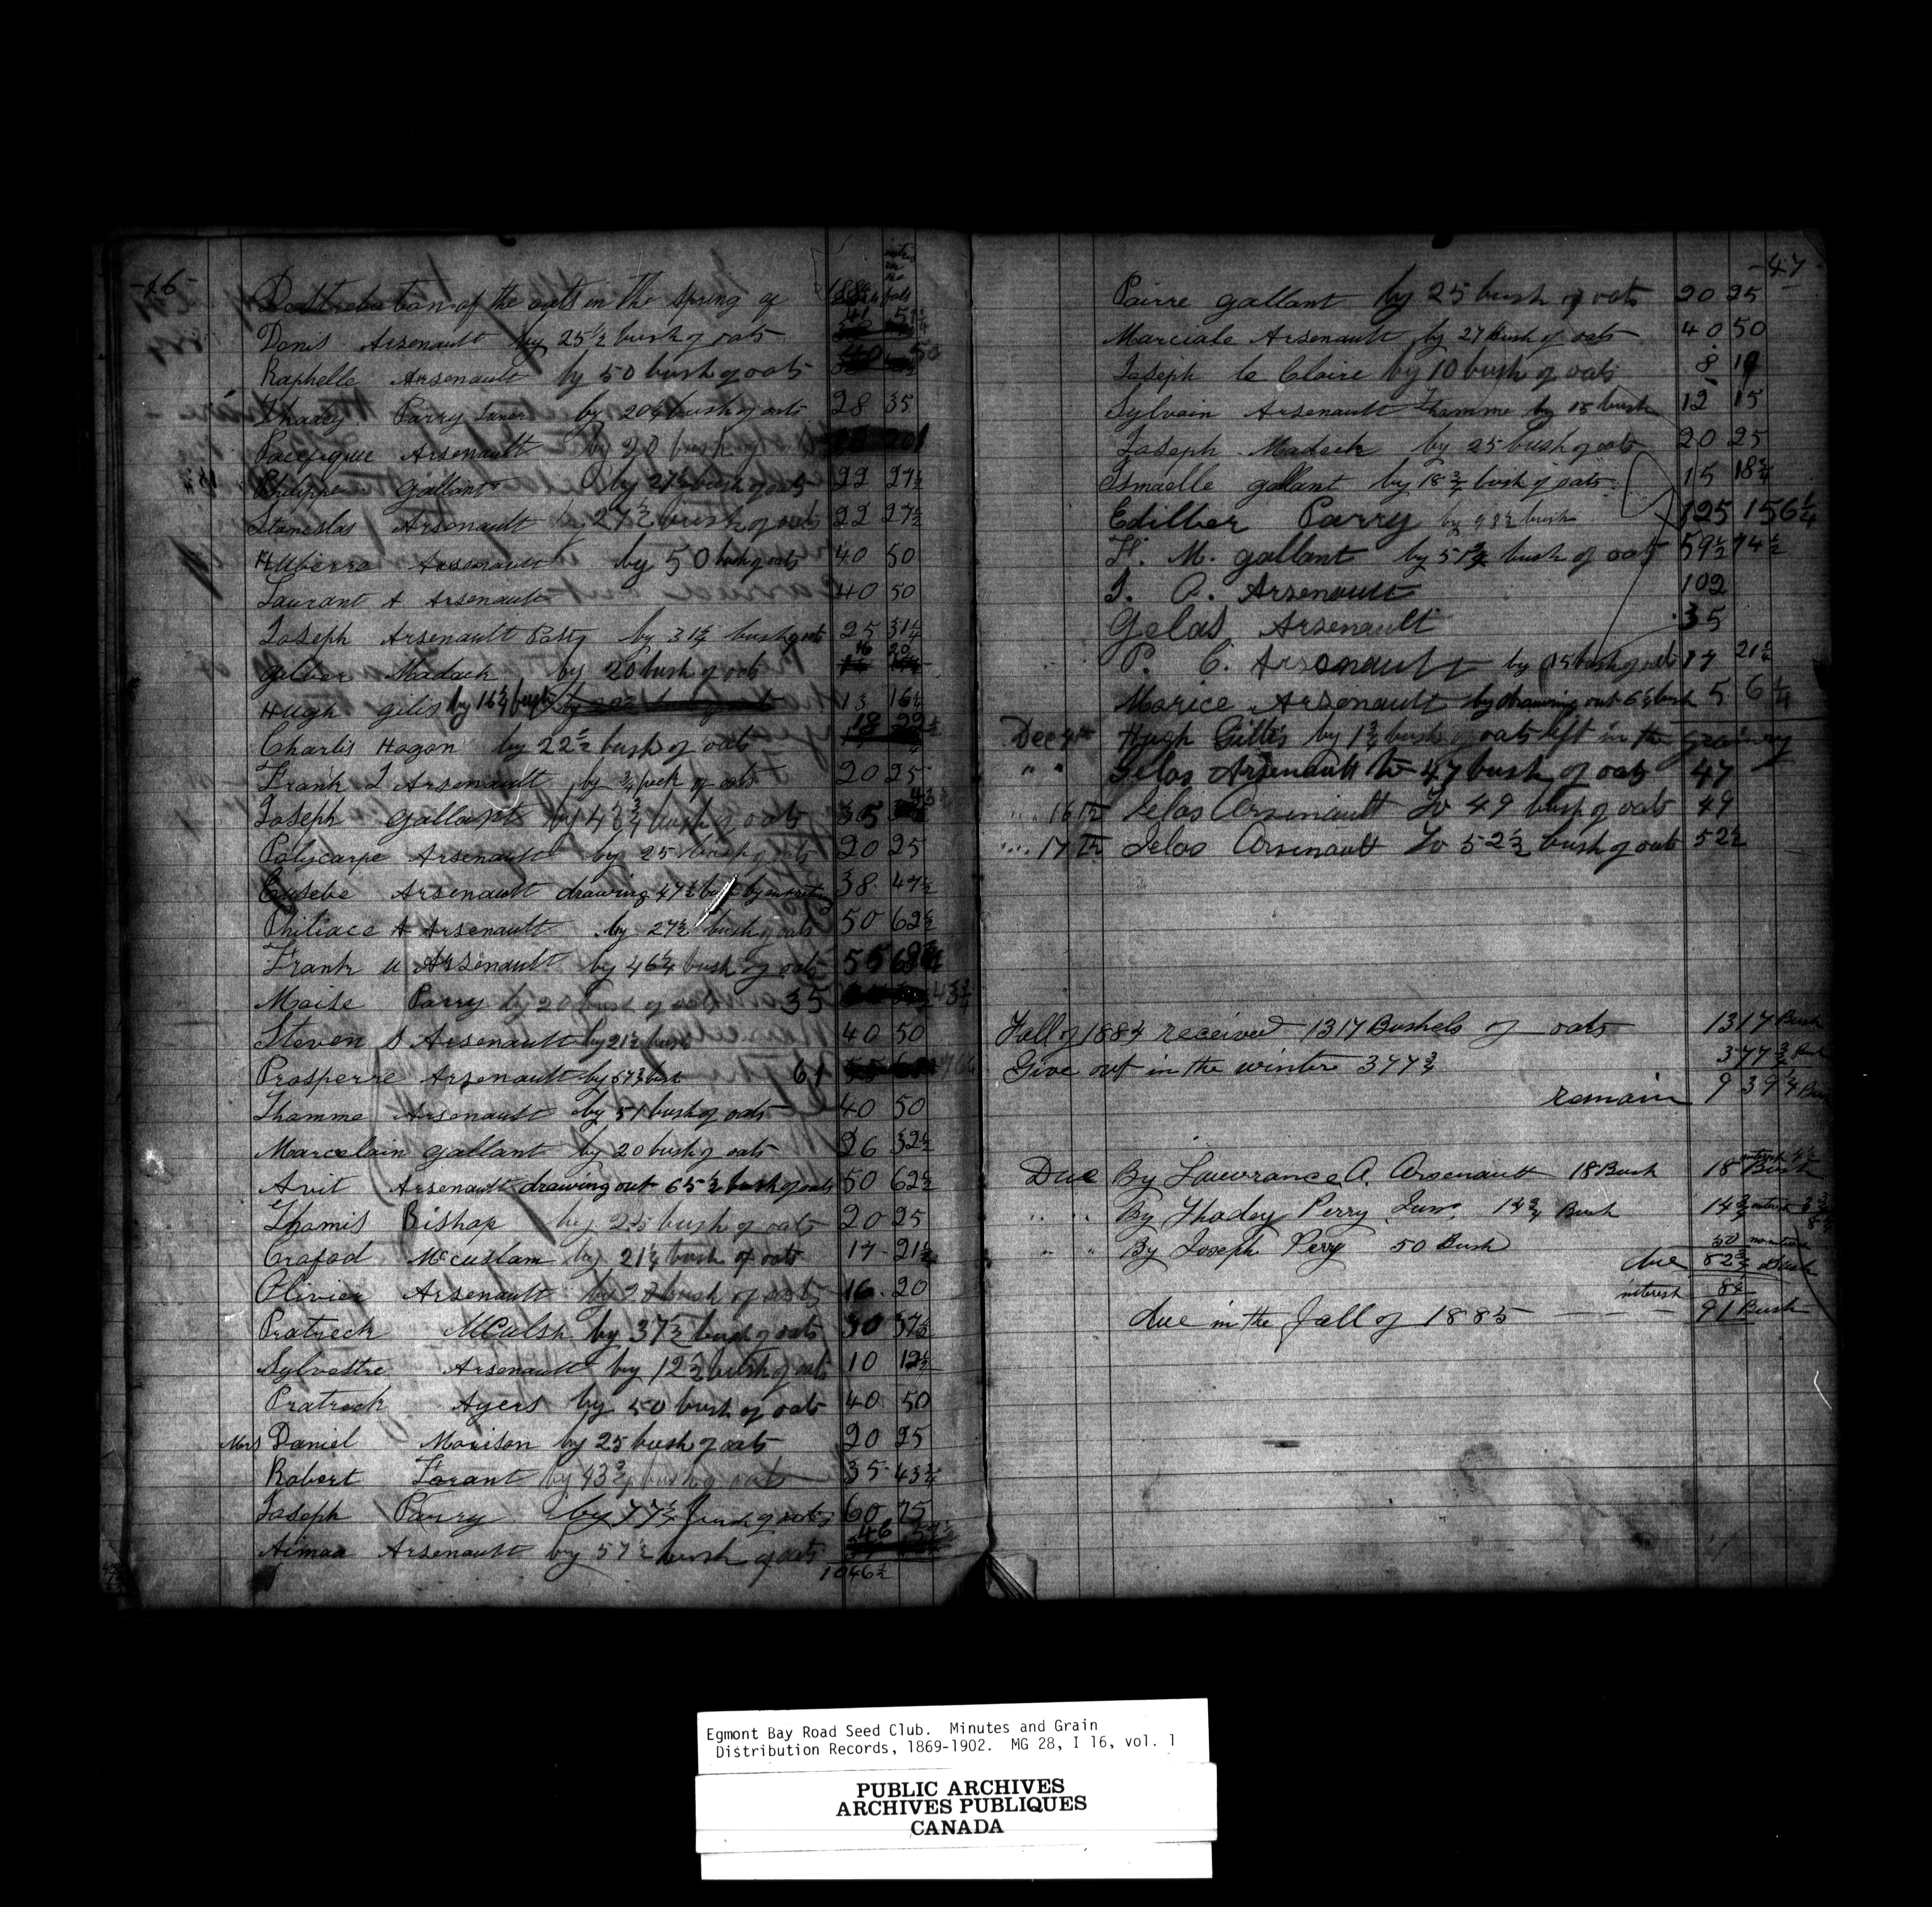 -46-
Destrebution of the oats in the spring of 1884
Denis Arsenault by 25 1/2 bush of oats 41 51 1/4
Raphelle Arsenault by 50 bush of oats 40 50
Thadey Parry by 20 1/4 bush of oats 28 35
Pacefique Arsenault by 20 bush of
Philippe Gallant by 27 1/2 bush of oats 22 27 1/2
Staneslas Arsenault by 27 1/2 bush of oats 22 27 1/2
Huberre Arsenault by 50 bush of oats 40 50
Laurant A Arsenault 40 50
Joseph Arsenault by 31 1/4 bush oats 25 31 1/4
Gilber Madack by 20 bush of oats 16 20
Hugh gilis by 16 1/4 bush 13 16 1/4
Charlis Hogan by 22 1/2 bush of oats 18 22 1/2
Frank J Arsenault by 3/4 peck of oats 20 25
Joseph Gallant by 43 3/4 bush of oats 35 43 3/4
Polycarpe Arsenault by 25 bush of oats 20 25
Eusebe Arsenault drawing 47 1/2 bush 38 47 1/2
Philiace A Arsenault by 27 1/2 bush of oats 50 62 1/2
Frank u Arsenault by 46 1/4 bush of oats 55 68 3/4
Moise Parry by 20 bush of oats 35 43 3/4
Steven S Arsenault by 21 1/2 bush 40 50
Prosperre Arsenault by 57 3/4 bush 61
Thamme Arsenault by 51 bush of oats 40 50
Marcelain gallant by 20 bush of oats 26 32 1/2
Avit Arsenault drawing out 65 1/2 bush of oats 50 62 1/2
Thamis Bishop by 25 bush of oats 20 25
Crafod McCuslam by 21 1/4 bush of oats 17 21 1/4
Olivier Arsenault bush of oats 16 20
Pratreck McCulsh by 37 1/2 bush of oats 30 37 1/2
Sylvestre Arsenault by 12 1/2 bush of oats 10 12 1/2
Pratreck Ayers by 50 bush of oats 40 50
Mrs Daniel Morison by 25 bush of oats 20 25
Robert Forant by 43 3/4 bush of oats 35 43 3/4
Joseph Parry by 77 1/2 bush of oats 60 75
Aimaa Arsenault by 57 1/2 bush of oats 46 57 1/2
1046 1/2
-47-
Pairre gallant by 25 bush of oats 20 25
Marciale Arsenault by 27 Bush of oats 40 50
Joseph le Claire by 10 bush of oats 8 10
Sylvain Arsenault Thamme by 15 bush 12 15
Joseph Madack by 25 bush of oats 20 25
Ismaelle gallant by 18 3/4 bush of oats 15 18 3/4
Edilber Parry by 98 1/2 bush 125 156 1/4
F. M. gallant by bush of oats 59 1/2 74 1/2
J. A. Arsenault 102
Gelas Arsenault 35
P. C. Arsenault by 15 bush of oats 17 21 1/4
Marice Arsenault by drawing out 6 1/4 bush 5 6 1/4
Dec 4th Hugh Gillis by 1 3/4 bush oats left in the grainry
" " Gelas Arsenault to 47 bush of oats 47
" 16th Jelas Arsenault To 49 bush of oats 49
" 17th Jelas Arsenault To 52 1/2 bush of oats 52 1/2
Fall of 1884 received 1317 Bushels of oats 1317 Bush
Give out in the winter 377 3/4 377 3/4 Bush
remain 939 1/4 Bush
Due By Lawrance A. Arsenault 18 Bush 18 Bush
" " By Thadey Perry Junr. 14 3/4 Bush 14 3/4 interest
" " By Joseph Perry 50 Bush 50 no interest
due 82 3/4 Bush
interest 8 1/4
due in the Fall of 1885 91 Bush
Egmont Bay Road Seed Club. Minutes and Grain
Distribution Records, 1869-1902. MG 28, I 16, vol. 1
PUBLIC ARCHIVES
ARCHIVES PUBLIQUES
CANADA